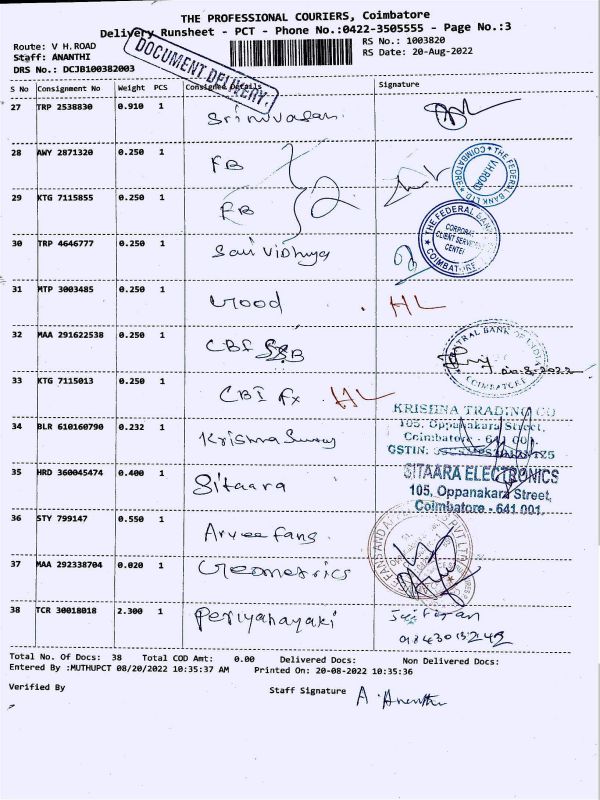 THE PROFESSIONAL COURIERS, Coimbatore
Delivery Runsheet - PCT - Phone No.:0422-3505555 - Page No.:3
Route: V H.ROAD
Staff: ANANTHI
DRS No.: DCJB100382003
DOCUMENT DELIVERY.
RS No.: 1003820
RS Date: 20-Aug-2022
S No Consignment No Weight PCS Consignee Details Signature
27 TRP 2538830 0.910 1 Srinivasan
28 AWY 2871320 0.250 1 FB
THE FEDERAL BANK LTD. V.H.ROAD COIMBATORE
29 KTG 7115855 0.250 1 FB
2
THE FEDERAL BANK CORPORATE CLIENT SERVICE CENTER COIMBATORE
30 TRP 4646777 0.250 1 Sai Vidhya
31 MTP 3003485 0.250 1 Wood HL
32 MAA 291622538 0.250 1 CBI
CENTRAL BANK OF INDIA COIMBATORE
33 KTG 7115013 0.250 1 CBI Fx HL
34 BLR 610160790 0.232 1 Krishna
KRISHNA TRADING CO
105, Oppanakara Street,
Coimbatore - 641 001.
GSTIN:
35 HRD 360045474 0.400 1 Sitaara
SITAARA ELECTRONICS
105, Oppanakara Street,
Coimbatore - 641 001.
36 STY 799147 0.550 1 Arvee fans
37 MAA 292338704 0.020 1 Geometrics
38 TCR 30018018 2.300 1 Periyanayaki
Total No. Of Docs: 38 Total COD Amt: 0.00 Delivered Docs: Non Delivered Docs:
Entered By :MUTHUPCT 08/20/2022 10:35:37 AM Printed On: 20-08-2022 10:35:36
Verified By
Staff Signature A. Ananthi